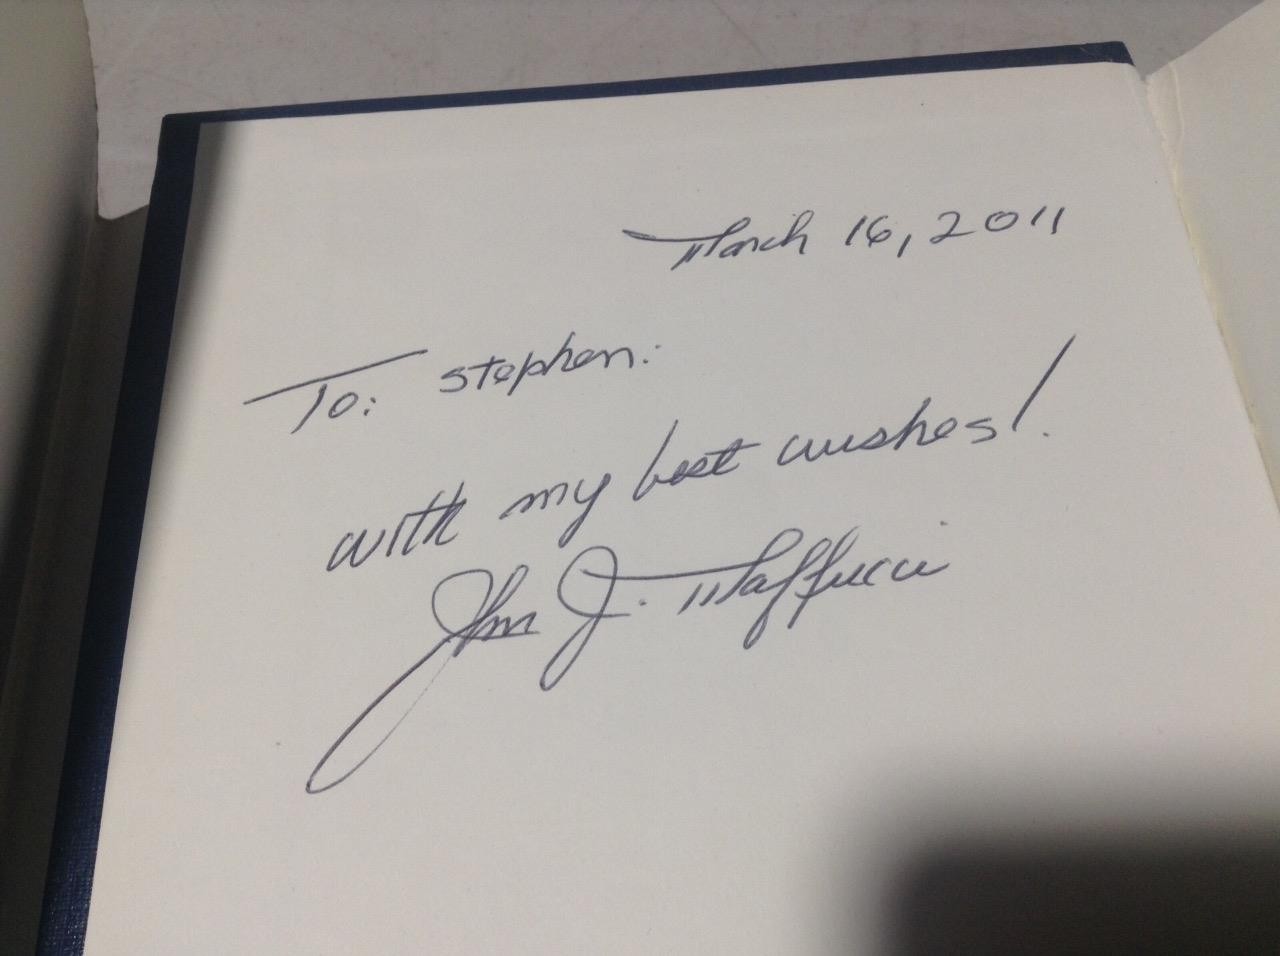 March 16, 2011
To: Stephen:
with my best wishes!
John J. Maffucci